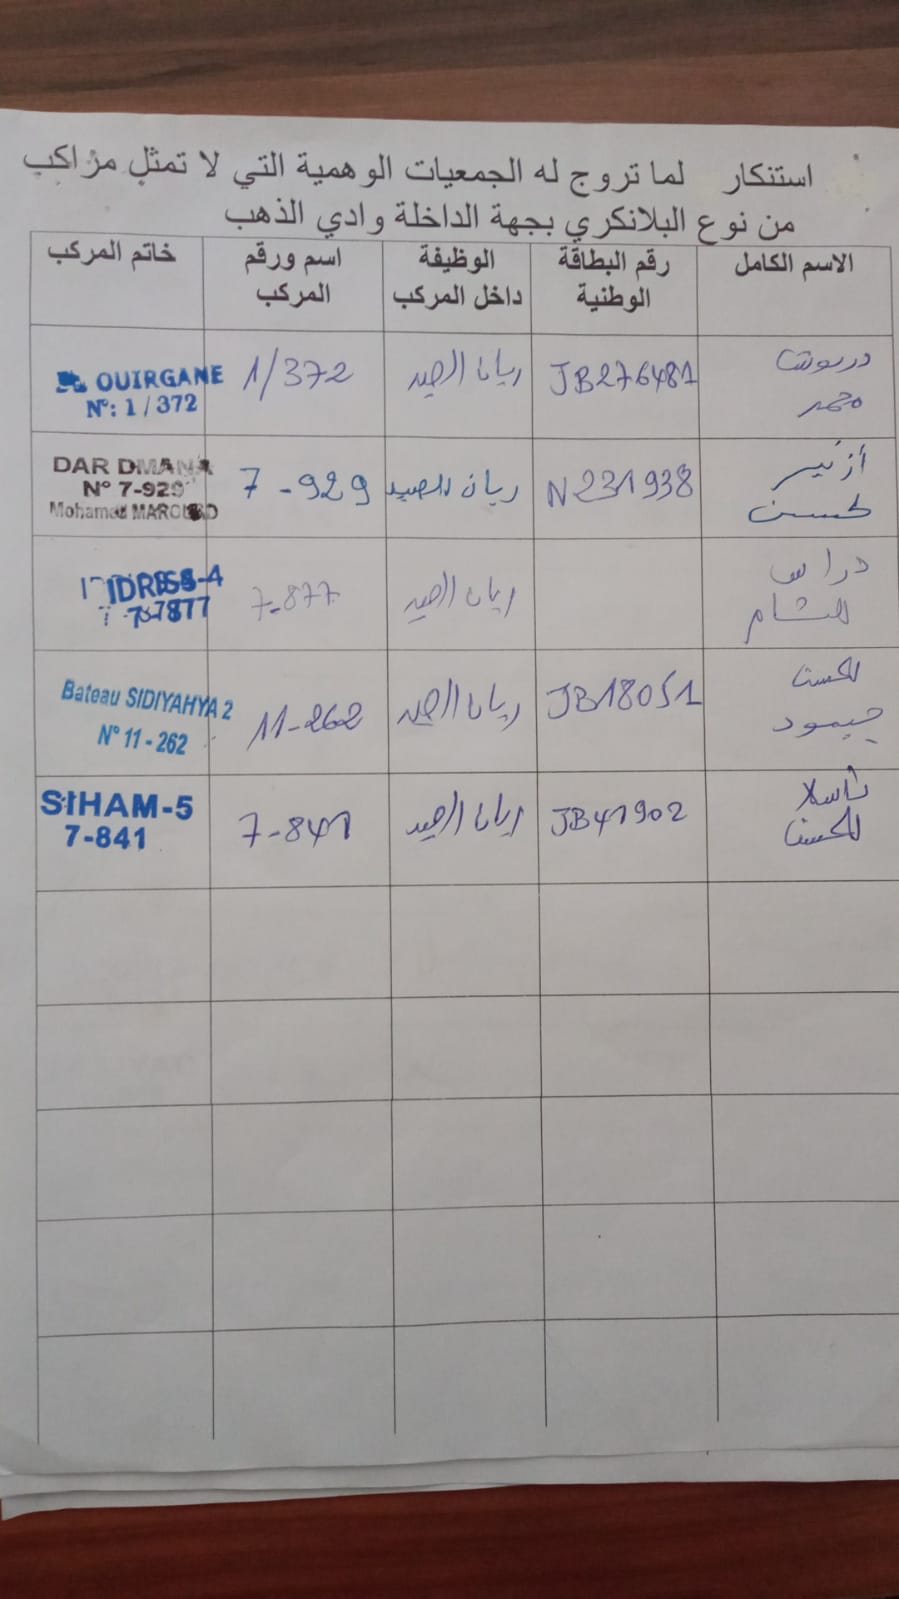 استنكار لما تروج له الجمعيات الوهمية التي لا تمثل مراكب
من نوع البلانكري بجهة الداخلة وادي الذهب
الاسم الكامل
رقم البطاقة
الوطنية
الوظيفة
داخل المركب
اسم ورقم
المركب
خاتم المركب
محمد
JB276481
ربان الصيد
1/372
OUIRGANE
N°: 1/372
لحسن
N231938
ربان الصيد
7-929
DAR DMANA
N° 7-929
Mohamed
دراس
هشام
ربان الصيد
7-877
IDRISS-4
7-877
الحسن
JB18051
ربان الصيد
11-262
Bateau SIDIYAHYA 2
N° 11-262
الحسن
JB41902
ربان الصيد
7-841
SIHAM-5
7-841